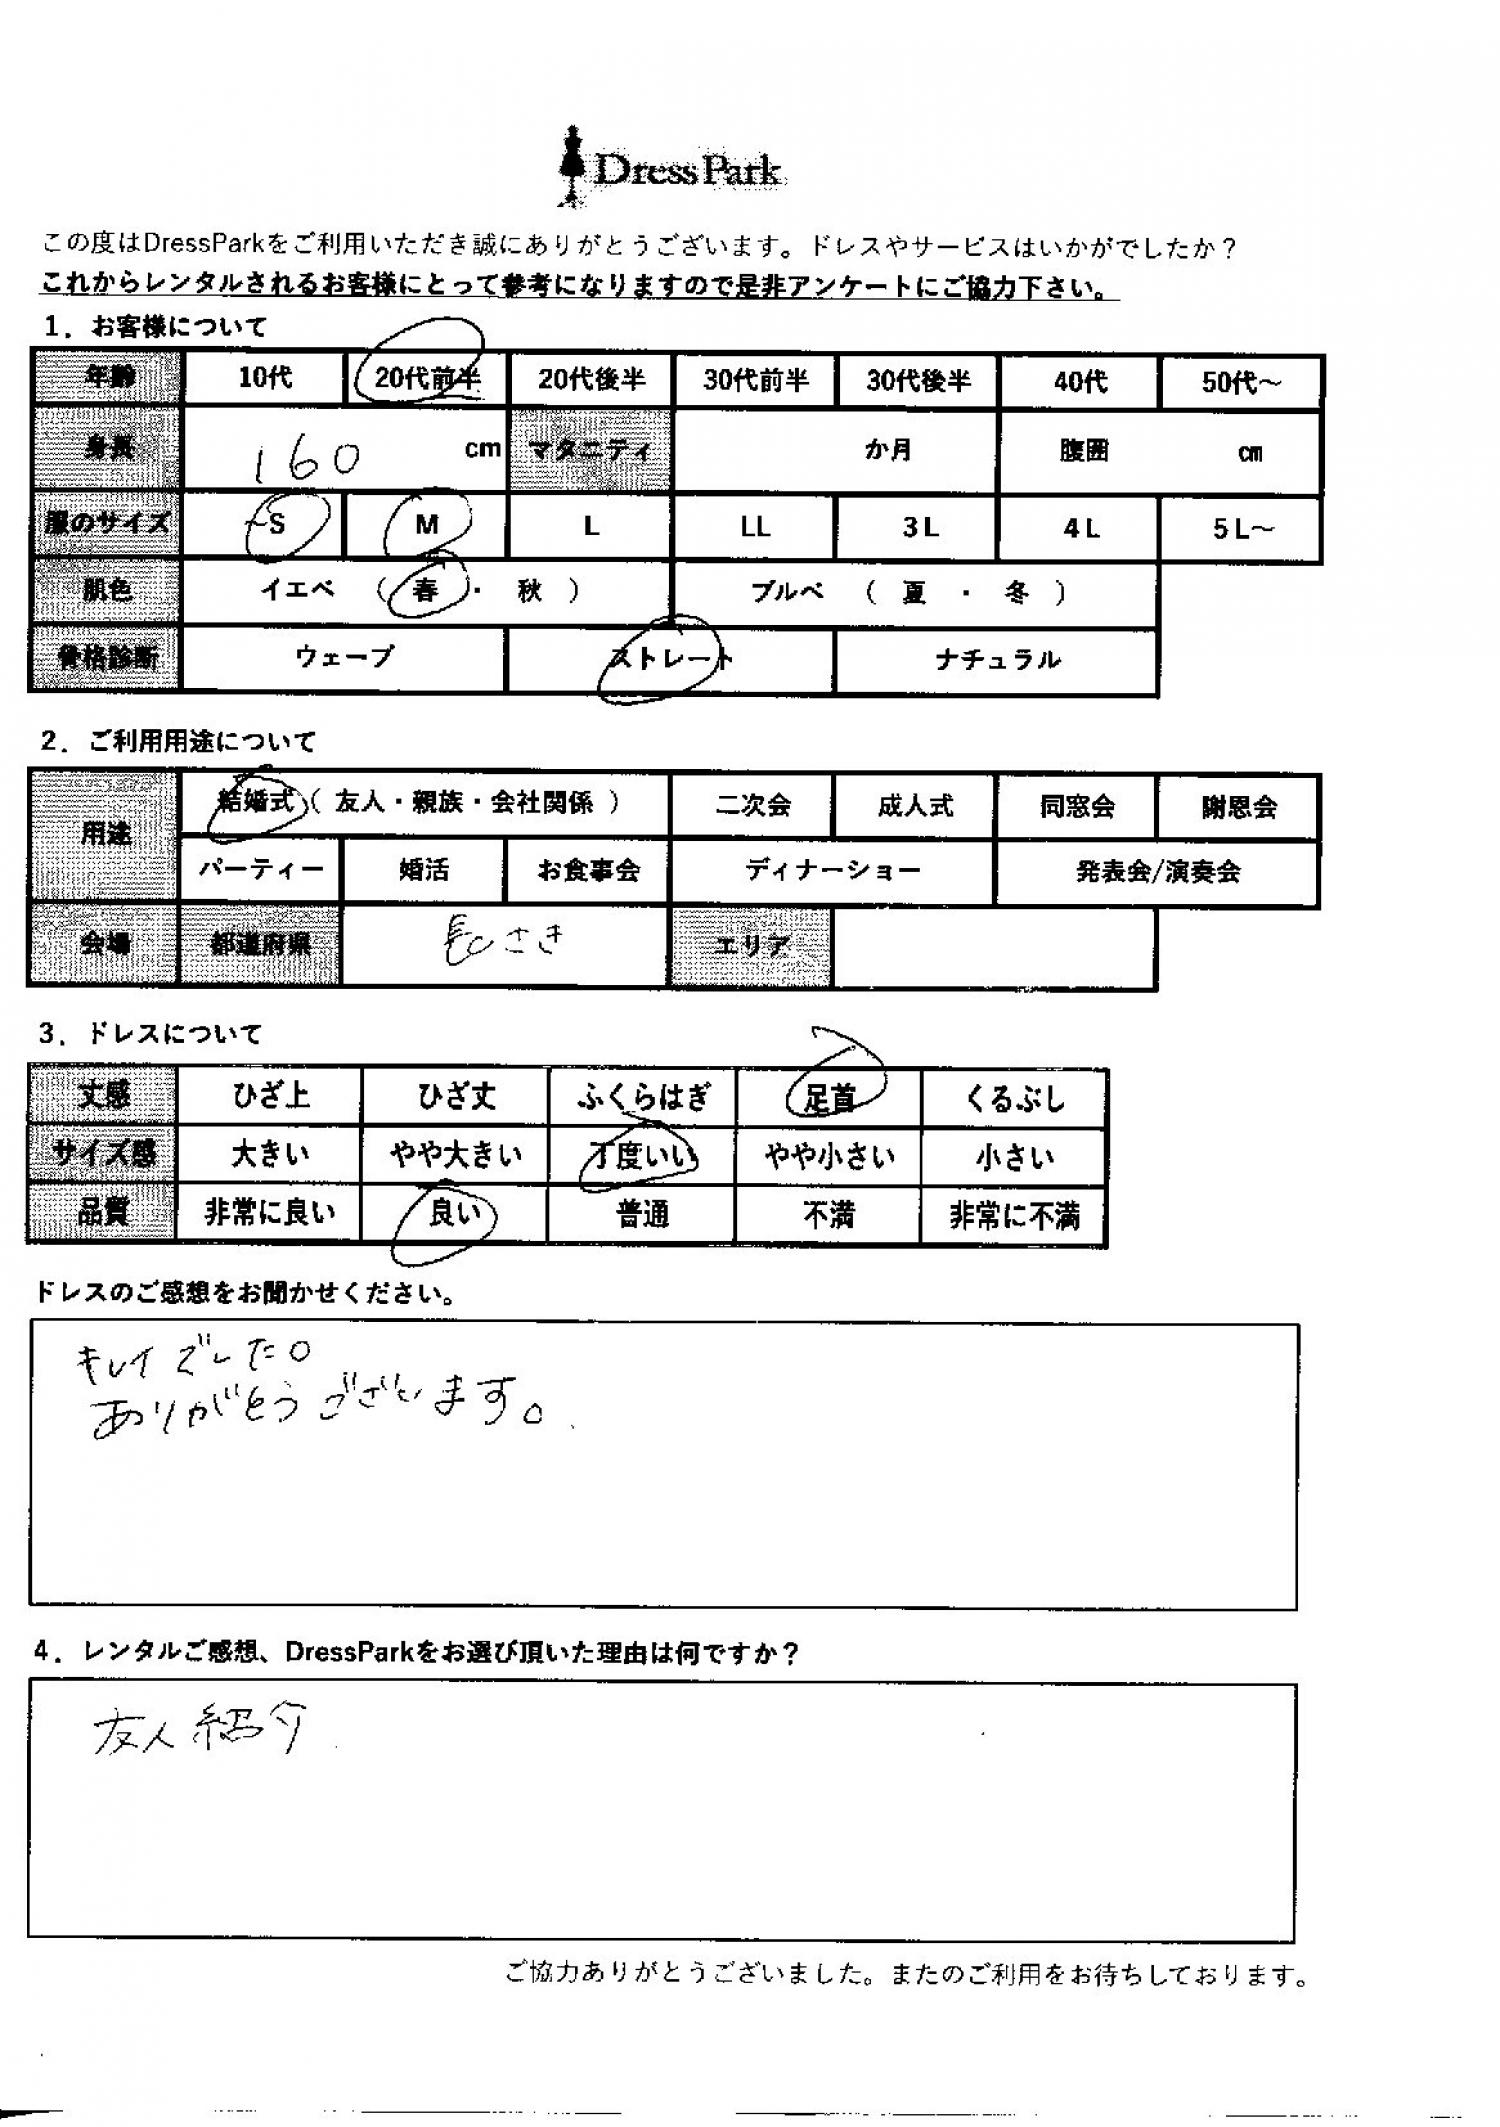 DressPark
この度はDressParkをご利用いただき誠にありがとうございます。ドレスやサービスはいかがでしたか？
これからレンタルされるお客様にとって参考になりますので是非アンケートにご協力下さい。
1．お客様について
年齢 10代 20代前半 20代後半 30代前半 30代後半 40代 50代～
身長 160 cm マタニティ か月 腹囲 cm
服のサイズ ~S M L LL 3L 4L 5L～
肌色 イエベ （ 春 ・ 秋 ） ブルベ （ 夏 ・ 冬 ）
骨格診断 ウェーブ ストレート ナチュラル
2．ご利用用途について
用途 結婚式（ 友人・親族・会社関係 ） 二次会 成人式 同窓会 謝恩会
パーティー 婚活 お食事会 ディナーショー 発表会/演奏会
会場 都道府県 長さき エリア
3．ドレスについて
丈感 ひざ上 ひざ丈 ふくらはぎ 足首 くるぶし
サイズ感 大きい やや大きい 丁度いい やや小さい 小さい
品質 非常に良い 良い 普通 不満 非常に不満
ドレスのご感想をお聞かせください。
キレイでした。
ありがとうございます。
4．レンタルご感想、DressParkをお選び頂いた理由は何ですか？
友人紹介
ご協力ありがとうございました。またのご利用をお待ちしております。